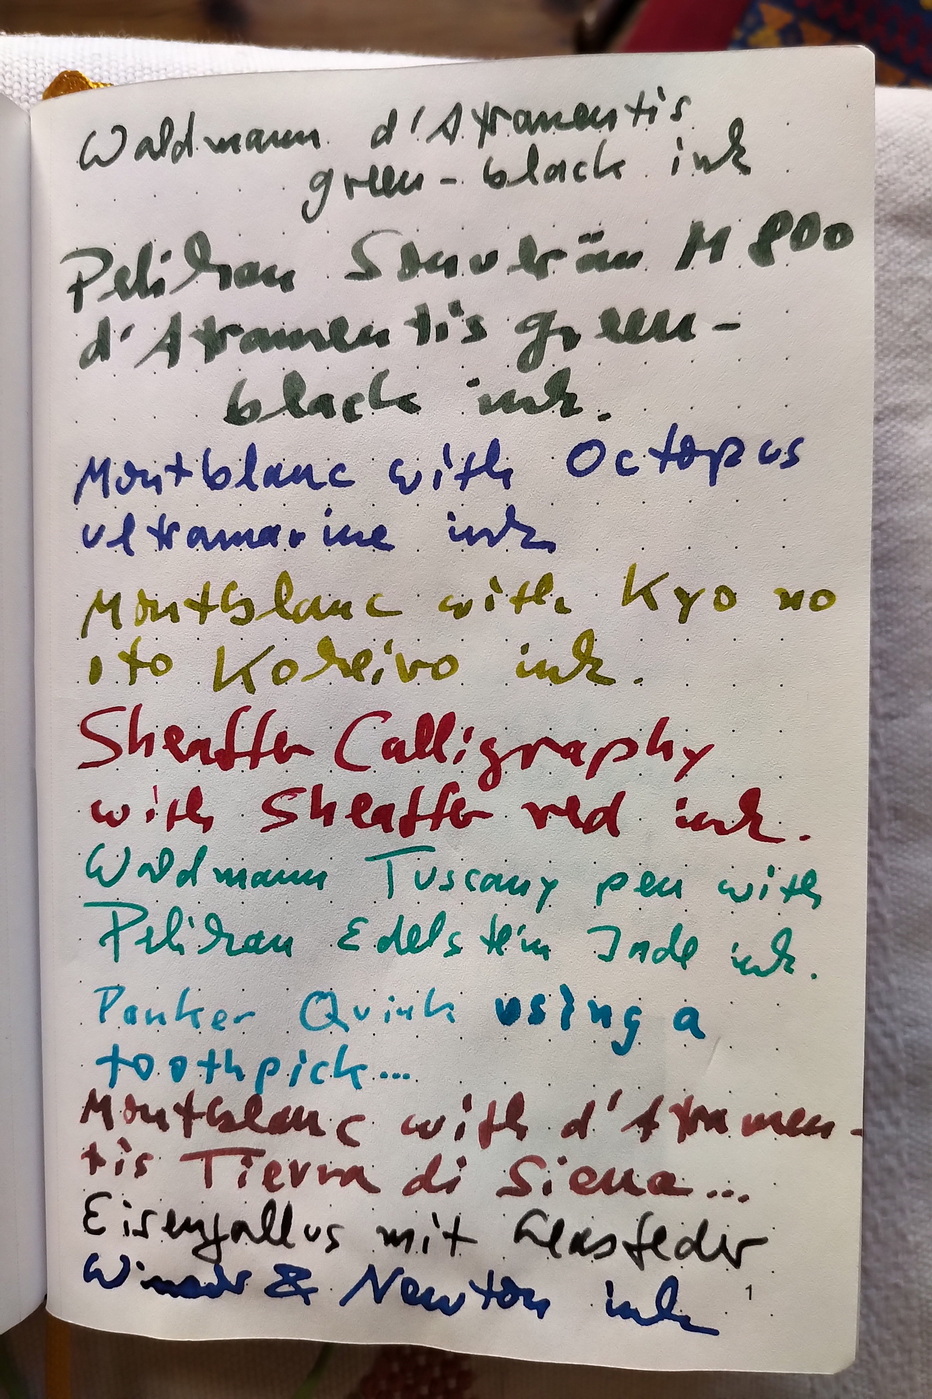 Waldmann d'Atramentis
green-black ink
Pelikan Souverän M800
d'Atramentis green-
black ink.
Montblanc with Octopus
ultramarine ink
Montblanc with Kyo no
ito Kokeiro ink.
Sheaffer Calligraphy
with Sheaffer red ink.
Waldmann Tuscany pen with
Pelikan Edelstein Jade ink.
Parker Quink using a
toothpick...
Montblanc with d'Atramen-
tis Tierra di Siena...
Eisengallus mit Glasfeder
Winsor & Newton ink
1